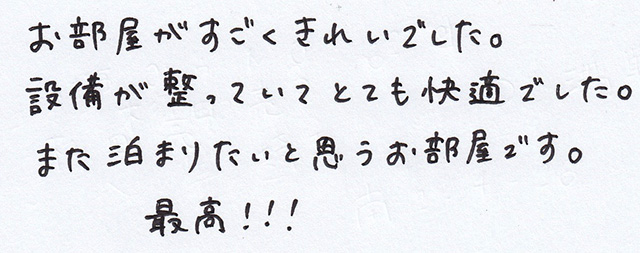 お部屋がすごくきれいでした。
設備が整っていてとても快適でした。
また泊まりたいと思うお部屋です。
最高!!!